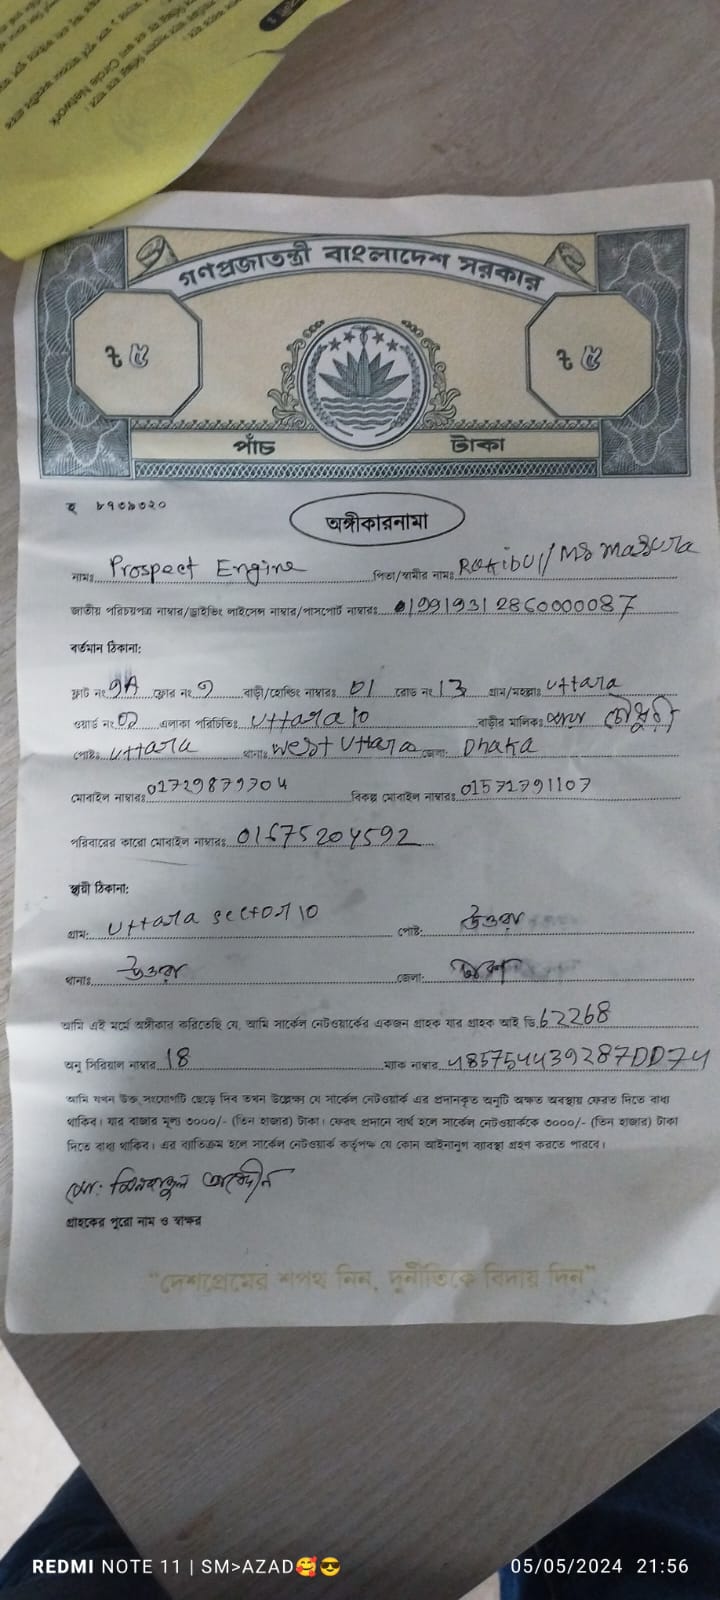 Circle Network
গণপ্রজাতন্ত্রী বাংলাদেশ সরকার
৳ ৫ ৳ ৫
পাঁচ টাকা
হ ৮৭৩৯৩২০
অঙ্গীকারনামা
নামঃ Prospect Engine পিতা/স্বামীর নামঃ Rakibul/ MS Masura
জাতীয় পরিচয়পত্র নাম্বার/ড্রাইভিং লাইসেন্স নাম্বার/পাসপোর্ট নাম্বারঃ 19919312860000087
বর্তমান ঠিকানা:
ফ্লাট নং 9A ফ্লোর নং ৯ বাড়ী/হোল্ডিং নাম্বারঃ 01 রোড নং 13 গ্রাম/মহল্লাঃ Uttara
ওয়ার্ড নং এলাকা পরিচিতিঃ Uttara 10 বাড়ীর মালিকঃ চৌধুরী
পোষ্টঃ Uttara থানাঃ West Uttara জেলা: Dhaka
মোবাইল নাম্বারঃ 01729879704 বিকল্প মোবাইল নাম্বারঃ 01571791107
পরিবারের কারো মোবাইল নাম্বারঃ 01675204592
স্থায়ী ঠিকানা:
গ্রাম: Uttara sector 10 পোষ্ট: উত্তরা
থানাঃ উত্তরা জেলা: ঢাকা
আমি এই মর্মে অঙ্গীকার করিতেছি যে, আমি সার্কেল নেটওয়ার্কের একজন গ্রাহক যার গ্রাহক আই ডি 62268
অনু সিরিয়াল নাম্বার 18 ম্যাক নাম্বার 485754439287DD74
আমি যখন উক্ত সংযোগটি ছেড়ে দিব তখন উল্লেক্ষ্য যে সার্কেল নেটওয়ার্ক এর প্রদানকৃত অনুটি অক্ষত অবস্থায় ফেরত দিতে বাধ্য
থাকিব। যার বাজার মূল্য ৩০০০/- (তিন হাজার) টাকা। ফেরৎ প্রদানে ব্যর্থ হলে সার্কেল নেটওয়ার্ককে ৩০০০/- (তিন হাজার) টাকা
দিতে বাধ্য থাকিব। এর ব্যতিক্রম হলে সার্কেল নেটওয়ার্ক কর্তৃপক্ষ যে কোন আইনানুগ ব্যাবস্থা গ্রহণ করতে পারবে।
মো: মিনহাজুল আবেদীন
গ্রাহকের পুরো নাম ও স্বাক্ষর
"দেশপ্রেমের শপথ নিন, দুর্নীতিকে বিদায় দিন"
REDMI NOTE 11 | SM>AZAD🥰😎 05/05/2024 21:56